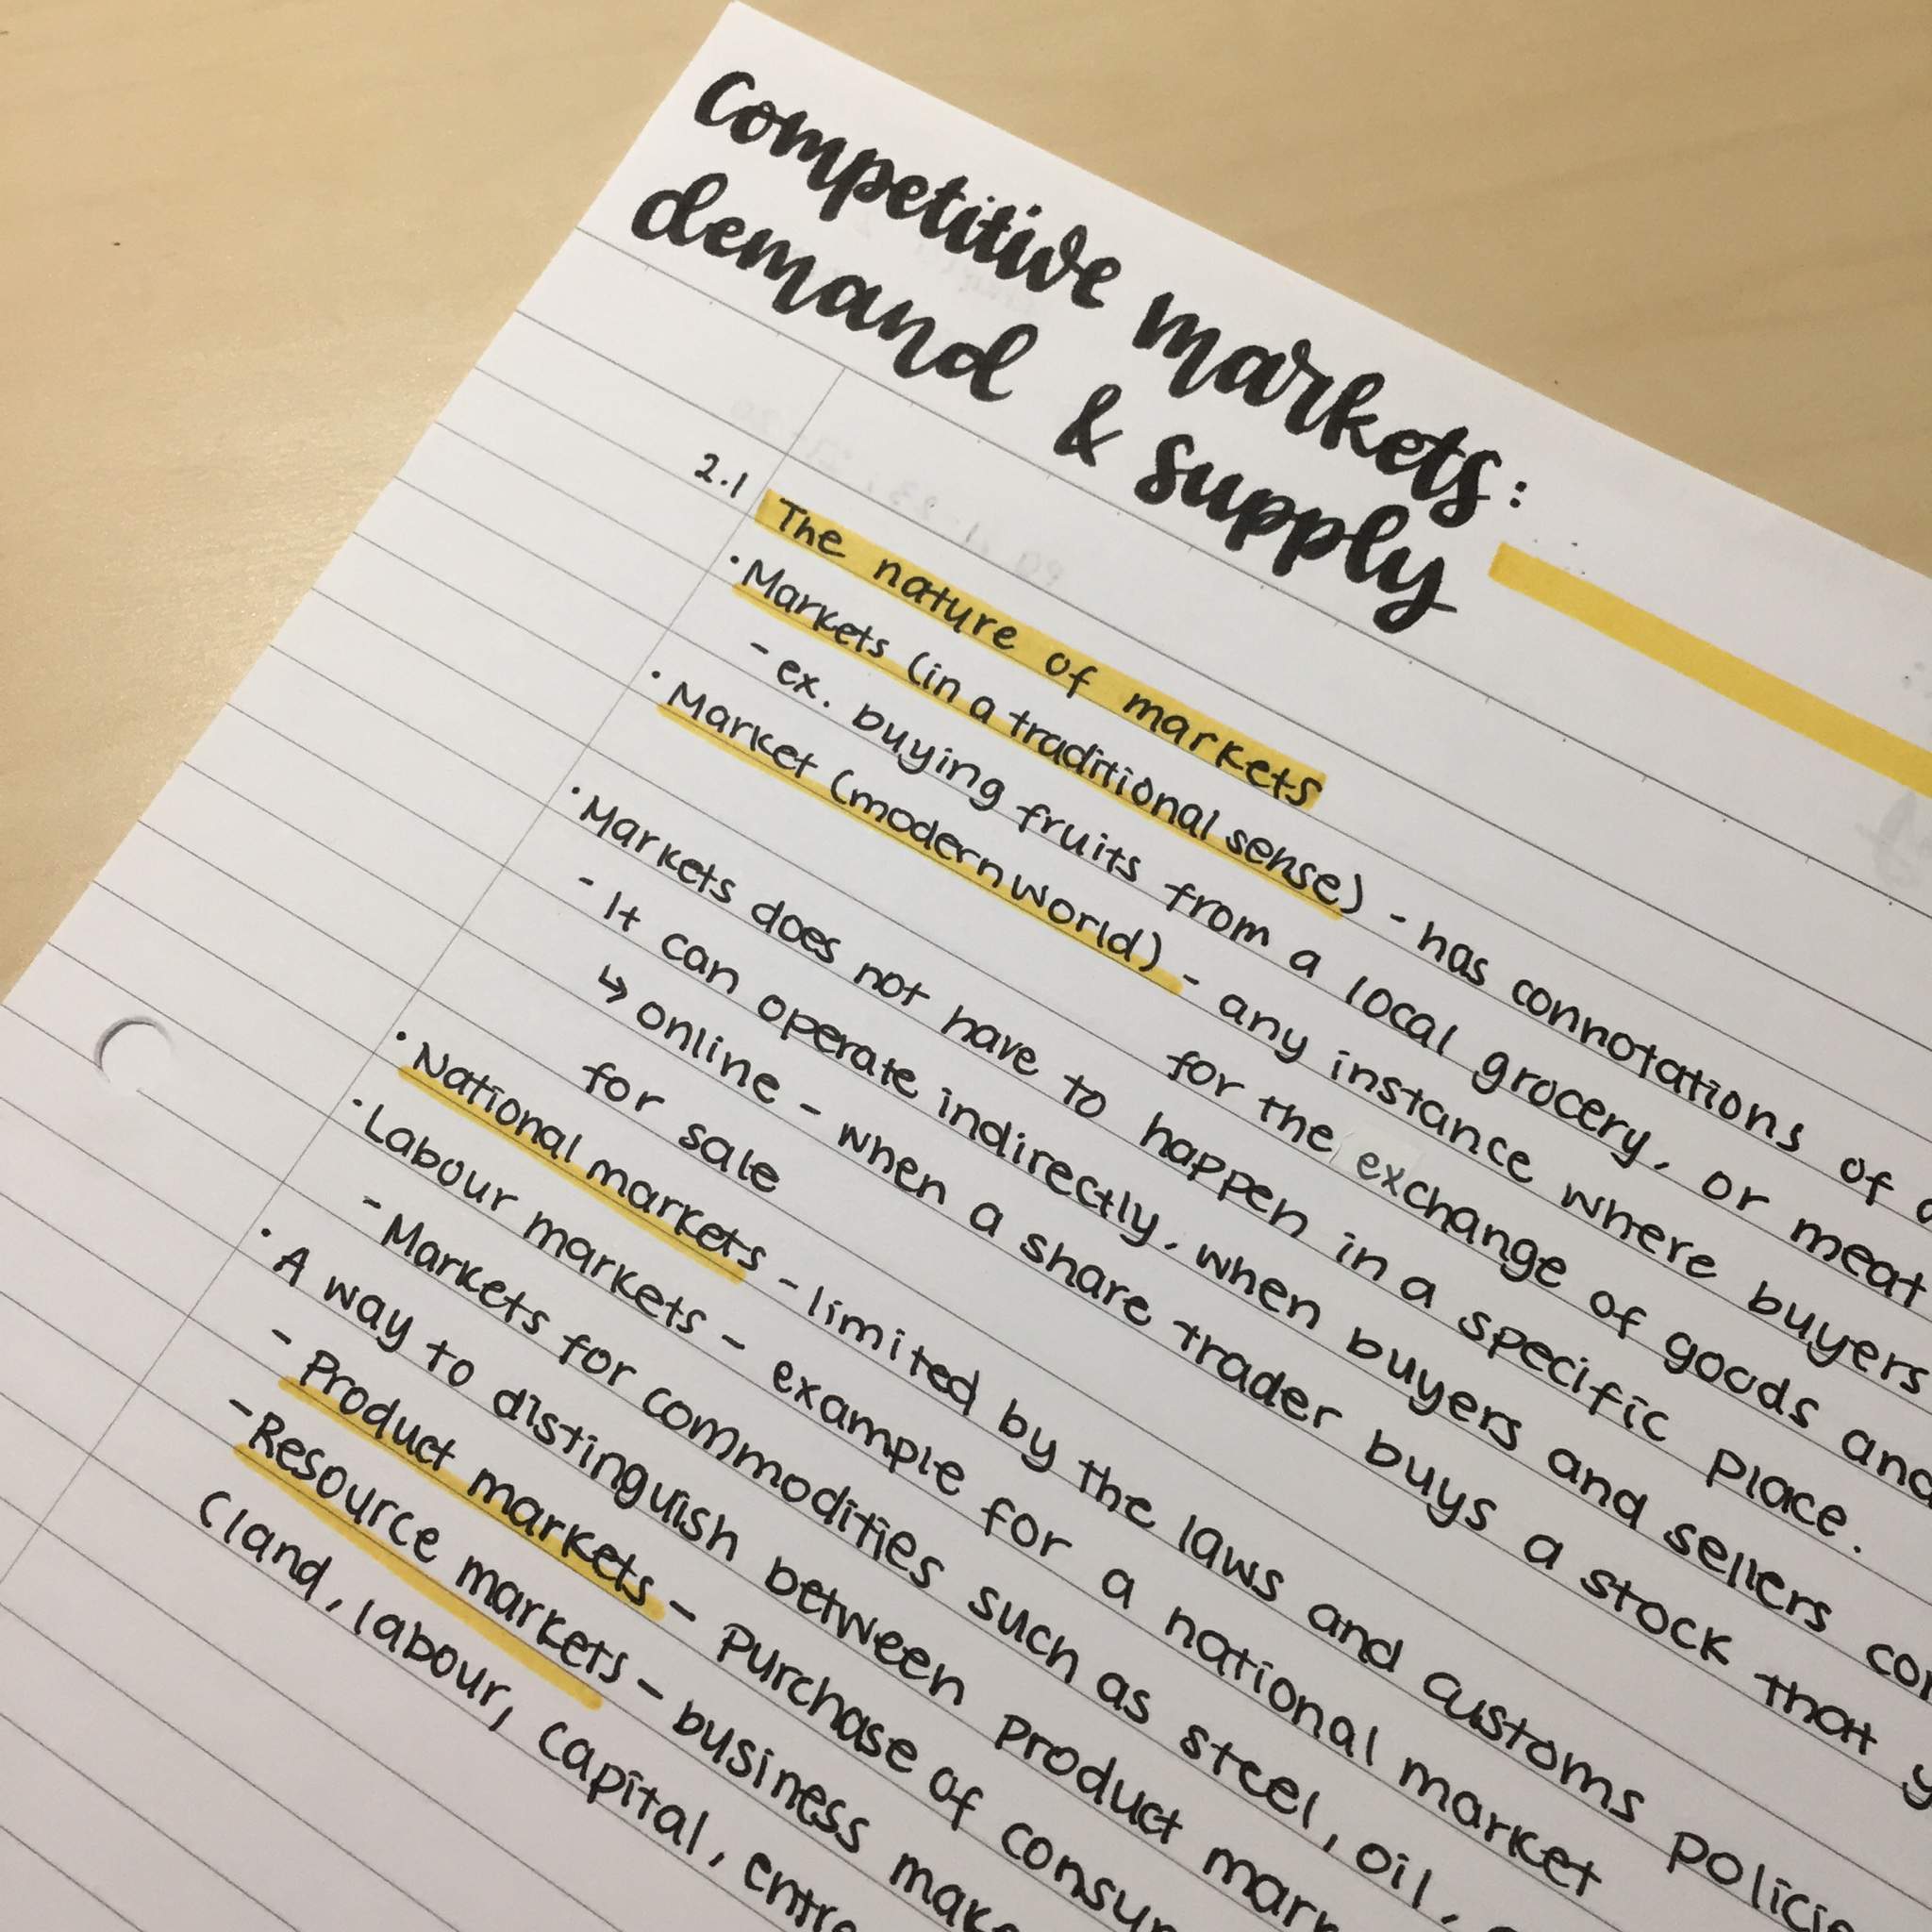 Competitive markets:
demand & supply
2.1 The nature of markets
· Markets (in a traditional sense) - has connotations of
- ex. buying fruits from a local grocery, or meat
· Market (modern world) - any instance where buyers
for the exchange of goods and
· Markets does not have to happen in a specific place.
- It can operate indirectly, when buyers and sellers
↳ online - when a share trader buys a stock that
for sale
· National markets - limited by the laws and customs
· Labour markets - example for a national market
- Markets for commodities such as steel, oil,
· A way to distinguish between product
- Product markets - Purchase of
- Resource markets - business
(land, labour, capital,